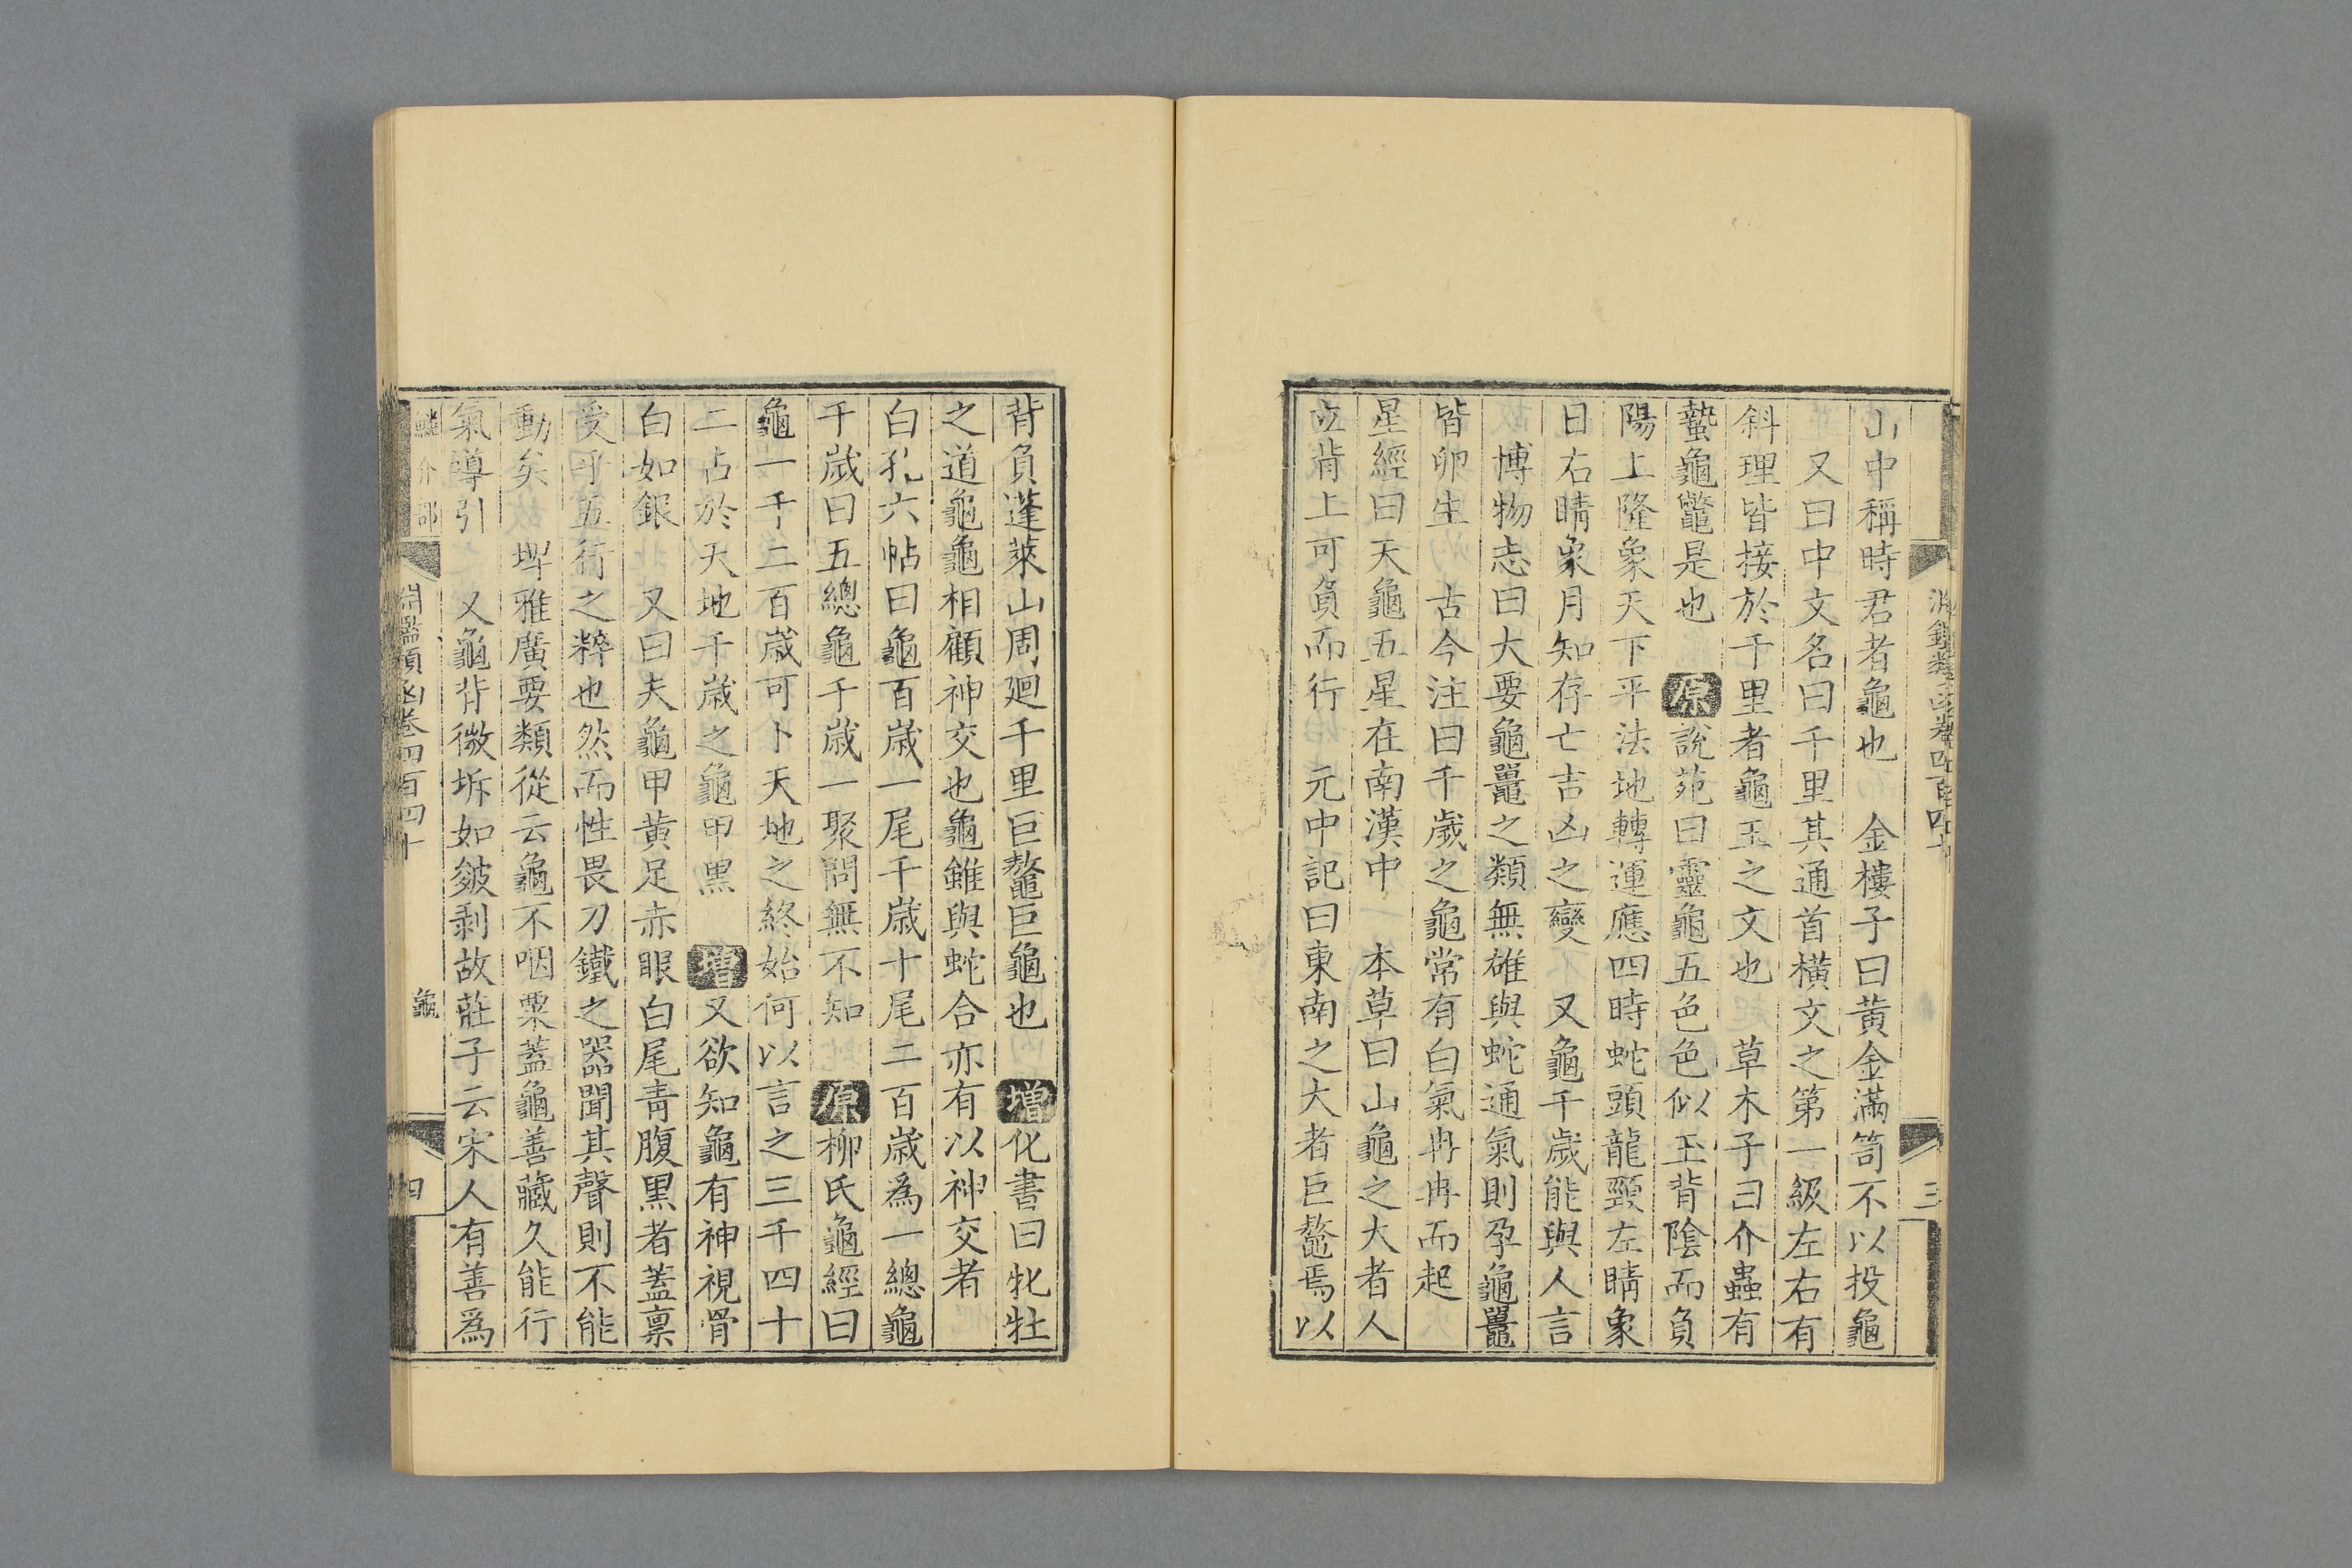 淵鑑類函卷四百四十
三
山中稱時君者龜也 金樓子曰黃金滿笥不以投龜
又曰中文名曰千里其通首橫文之第一級左右有
斜理皆接於千里者龜王之文也 草木子曰介蟲有
蟄龜鼈是也 原說苑曰靈龜五色色似玉背陰而負
陽上隆象天下平法地轉運應四時蛇頭龍頸左睛象
日右睛象月知存亡吉凶之變 又龜千歲能與人言
博物志曰大要龜鼉之類無雄與蛇通氣則孕龜鼉
皆卵生 古今注曰千歲之龜常有白氣冉冉而起
星經曰天龜五星在南漢中 本草曰山龜之大者人
立背上可負而行 元中記曰東南之大者巨鼇焉以
背負蓬萊山周迴千里巨鼇巨龜也 增化書曰牝牡
之道龜龜相顧神交也龜雖與蛇合亦有以神交者
白孔六帖曰龜百歲一尾千歲十尾二百歲為一總龜
千歲曰五總龜千歲一聚問無不知 原柳氏龜經曰
龜一千二百歲可卜天地之終始何以言之三千四十
二占於天地千歲之龜甲黑 增又欲知龜有神視骨
白如銀 又曰夫龜甲黃足赤眼白尾青腹黑者蓋稟
受乎五行之粹也然而性畏刀鐵之器聞其聲則不能
動矣 埤雅廣要類從云龜不咽粟蓋龜善藏久能行
氣導引 又龜背微坼如皴剥故莊子云宋人有善為
鱗介部
淵鑑類函卷四百四十
龜
四